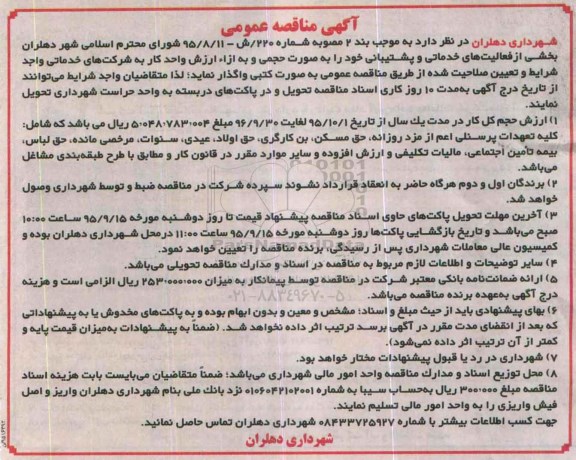 آگهی مناقصه عمومی
شهرداری دهلران در نظر دارد به موجب بند ۲ مصوبه شماره ۲۲۰/ش - ۹۵/۸/۱۱ شورای محترم اسلامی شهر دهلران
بخشی از فعالیت‌های خدماتی و پشتیبانی خود را به صورت حجمی و به ازاء ارزش واحد کار به شرکت‌های خدماتی واجد
شرایط و تعیین صلاحیت شده از طریق مناقصه عمومی به صورت کتبی واگذار نماید؛ لذا متقاضیان واجد شرایط می‌توانند
از تاریخ درج آگهی به‌مدت ۱۰ روز کاری اسناد مناقصه تحویل و در پاکت‌های دربسته به واحد حراست شهرداری تحویل
نمایند.
۱) ارزش حجم کل کار در مدت یک سال از تاریخ ۹۵/۱۰/۱ لغایت ۹۶/۹/۳۰ مبلغ ۵،۰۴۸،۷۸۳،۰۰۴ ریال می باشد که شامل:
کلیه تعهدات پرسنلی اعم از مزد روزانه، حق مسکن، بن کارگری، حق اولاد، عیدی، سنوات، مرخصی مانده، حق لباس،
بیمه تأمین اجتماعی، مالیات تکلیفی و ارزش افزوده و سایر موارد مقرر در قانون کار و مطابق با طرح طبقه‌بندی مشاغل
می‌باشد.
۲) برندگان اول و دوم هرگاه حاضر به انعقاد قرارداد نشوند سپرده شرکت در مناقصه ضبط و توسط شهرداری وصول
خواهد شد.
۳) آخرین مهلت تحویل پاکت‌های حاوی اسناد مناقصه پیشنهاد قیمت تا روز دوشنبه مورخه ۹۵/۹/۱۵ ساعت ۱۰:۰۰
صبح می‌باشد و تاریخ بازگشایی پاکت‌ها روز دوشنبه مورخه ۹۵/۹/۱۵ ساعت ۱۱:۰۰ در محل شهرداری دهلران بوده و
کمیسیون عالی معاملات شهرداری پس از رسیدگی، برنده مناقصه را تعیین خواهد نمود.
۴) سایر توضیحات و اطلاعات لازم مربوط به مناقصه در اسناد و مدارک مناقصه تحویلی می‌باشد.
۵) ارائه ضمانت‌نامه بانکی معتبر شرکت در مناقصه توسط پیمانکار به میزان ۲۵۳،۰۰۰،۰۰۰ ریال الزامی است و هزینه
درج آگهی به‌عهده برنده مناقصه می‌باشد.
۶) بهای پیشنهادی باید از حیث مبلغ و اسناد؛ مشخص و معین و بدون ابهام بوده و به پاکت‌های مخدوش یا به پیشنهاداتی
که بعد از انقضای مدت مقرر در آگهی برسد ترتیب اثر داده نخواهد شد. (ضمناً به پیشنهادات به‌میزان قیمت پایه و
کمتر از آن ترتیب اثر داده نمی‌شود).
۷) شهرداری در رد یا قبول پیشنهادات مختار خواهد بود.
۸) محل توزیع اسناد و مدارک مناقصه واحد امور مالی شهرداری می‌باشد؛ ضمناً متقاضیان می‌بایست بابت هزینه اسناد
مناقصه مبلغ ۳۰۰،۰۰۰ ریال به‌حساب سیبا به شماره ۰۱۰۶۰۴۲۱۰۲۰۰۱ نزد بانک ملی بنام شهرداری دهلران واریز و اصل
فیش واریزی را به واحد امور مالی تسلیم نمایند.
جهت کسب اطلاعات بیشتر با شماره ۰۸۴۳۳۷۲۵۹۲۷ شهرداری دهلران تماس حاصل نمائید.
شهرداری دهلران
۰۲۱-۸۸۳۴۹۶۷۰-۵